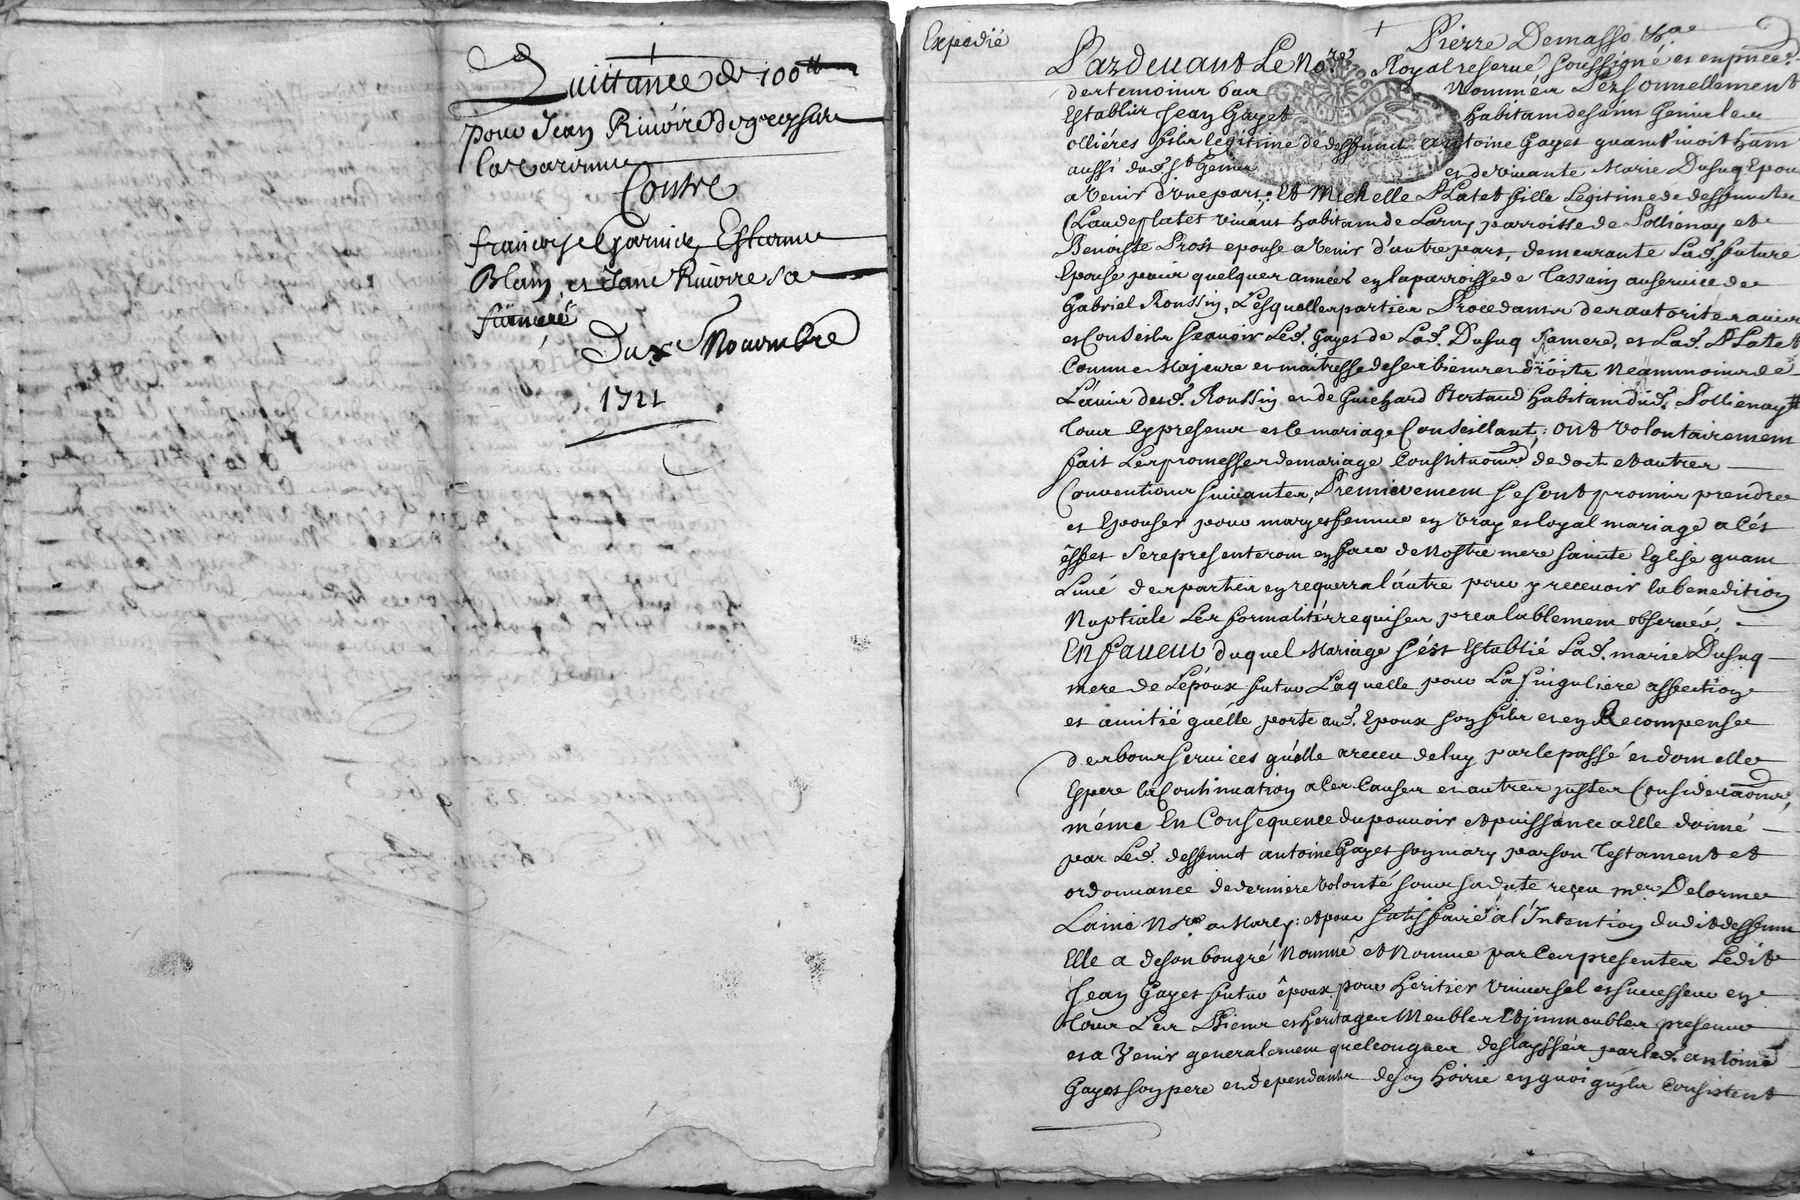 Quittance de 100ll
pour Jean Rivoire de
la
Contre
françoise Garnier Estienne
Blain et Jane Rivoire sa
Du xe Novembre
1721
Expedié
Pierre Demasso
Pardevant Le Nore Royal reservé soussigné et en pnce
des temoins bas nommés Personnellement
Establis Jean Gayet habitant de saint Genis les
ollières fils legitime de deffunct antoine Gayet quant vivoit hant
aussi dud. st Genis et de vivante Marie Dusuq Epoux
a venir d'une part: Et Michelle Platet fille Legitime de deffuncts
Claude Platet vivant habitant de parroisse de Pollienay et
Benoiste epouse a venir d'autre part, demeurante Lad. future
Epouse pour quelques années en la parroisse de Tassain au service de
Gabriel Roussin, Lesquelles parties Procedants des autorités avis
et Conseils sçavoir Led. Gayet de Lad. Dusuq sa mere, et Lad. Platet
Comme Majeure et maitresse de ses biens et droits neammoins de
L'avis dud. Roussin et de Guichard Bertaud habitant dud. Pollienay
tous cy presents et le mariage Conseillant; ont volontairement
fait Les promesses de mariage Constitutions de dot et autres
Conventions suivantes, Premierement se sont promis prendre
et Epouser pour mary et femme en vray et loyal mariage a cés
éffet se representeront en face de Nostre mere sainte Eglise quant
L'une des parties en requerra l'autre pour y recevoir la benedition
Nuptiale Les formalités requises prealablement observée,
En faveur duquel Mariage s'est Establié Lad. marie Dusuq
mere de L'époux futur Laquelle pour La singuliere affection
et amitié qu'elle porte aud. Epoux son fils et en Recompense
des bons services qu'elle a receu de luy par le passé et dont elle
Espere la Continuation a ces Causes et autres justes Considerations,
même En Consequence du pouvoir et puissance a Elle donné
par Led. deffunct antoine Gayet son mary par son Testament et
ordonnance de derniere volonté sous sa date reçeu me Delorme
L'ainé Nore a: et pour satisfaire a l'Intention dudit deffunct
Elle a de son bon gré Nommé et Nomme par Ces presentes Ledit
Jean Gayet futur époux pour heritier Vniversel et successeur en
tous Les Biens et heritages Meubles Et jmmeubles presents
et a Venir generalement quelconques delayssés par led. antoine
Gayet son pere et dependants de son hoirie en quoi qu'ils Consistent